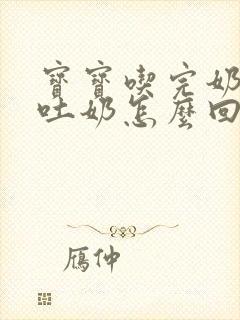 寶寶喫完奶
吐奶怎麼回
鴈仲